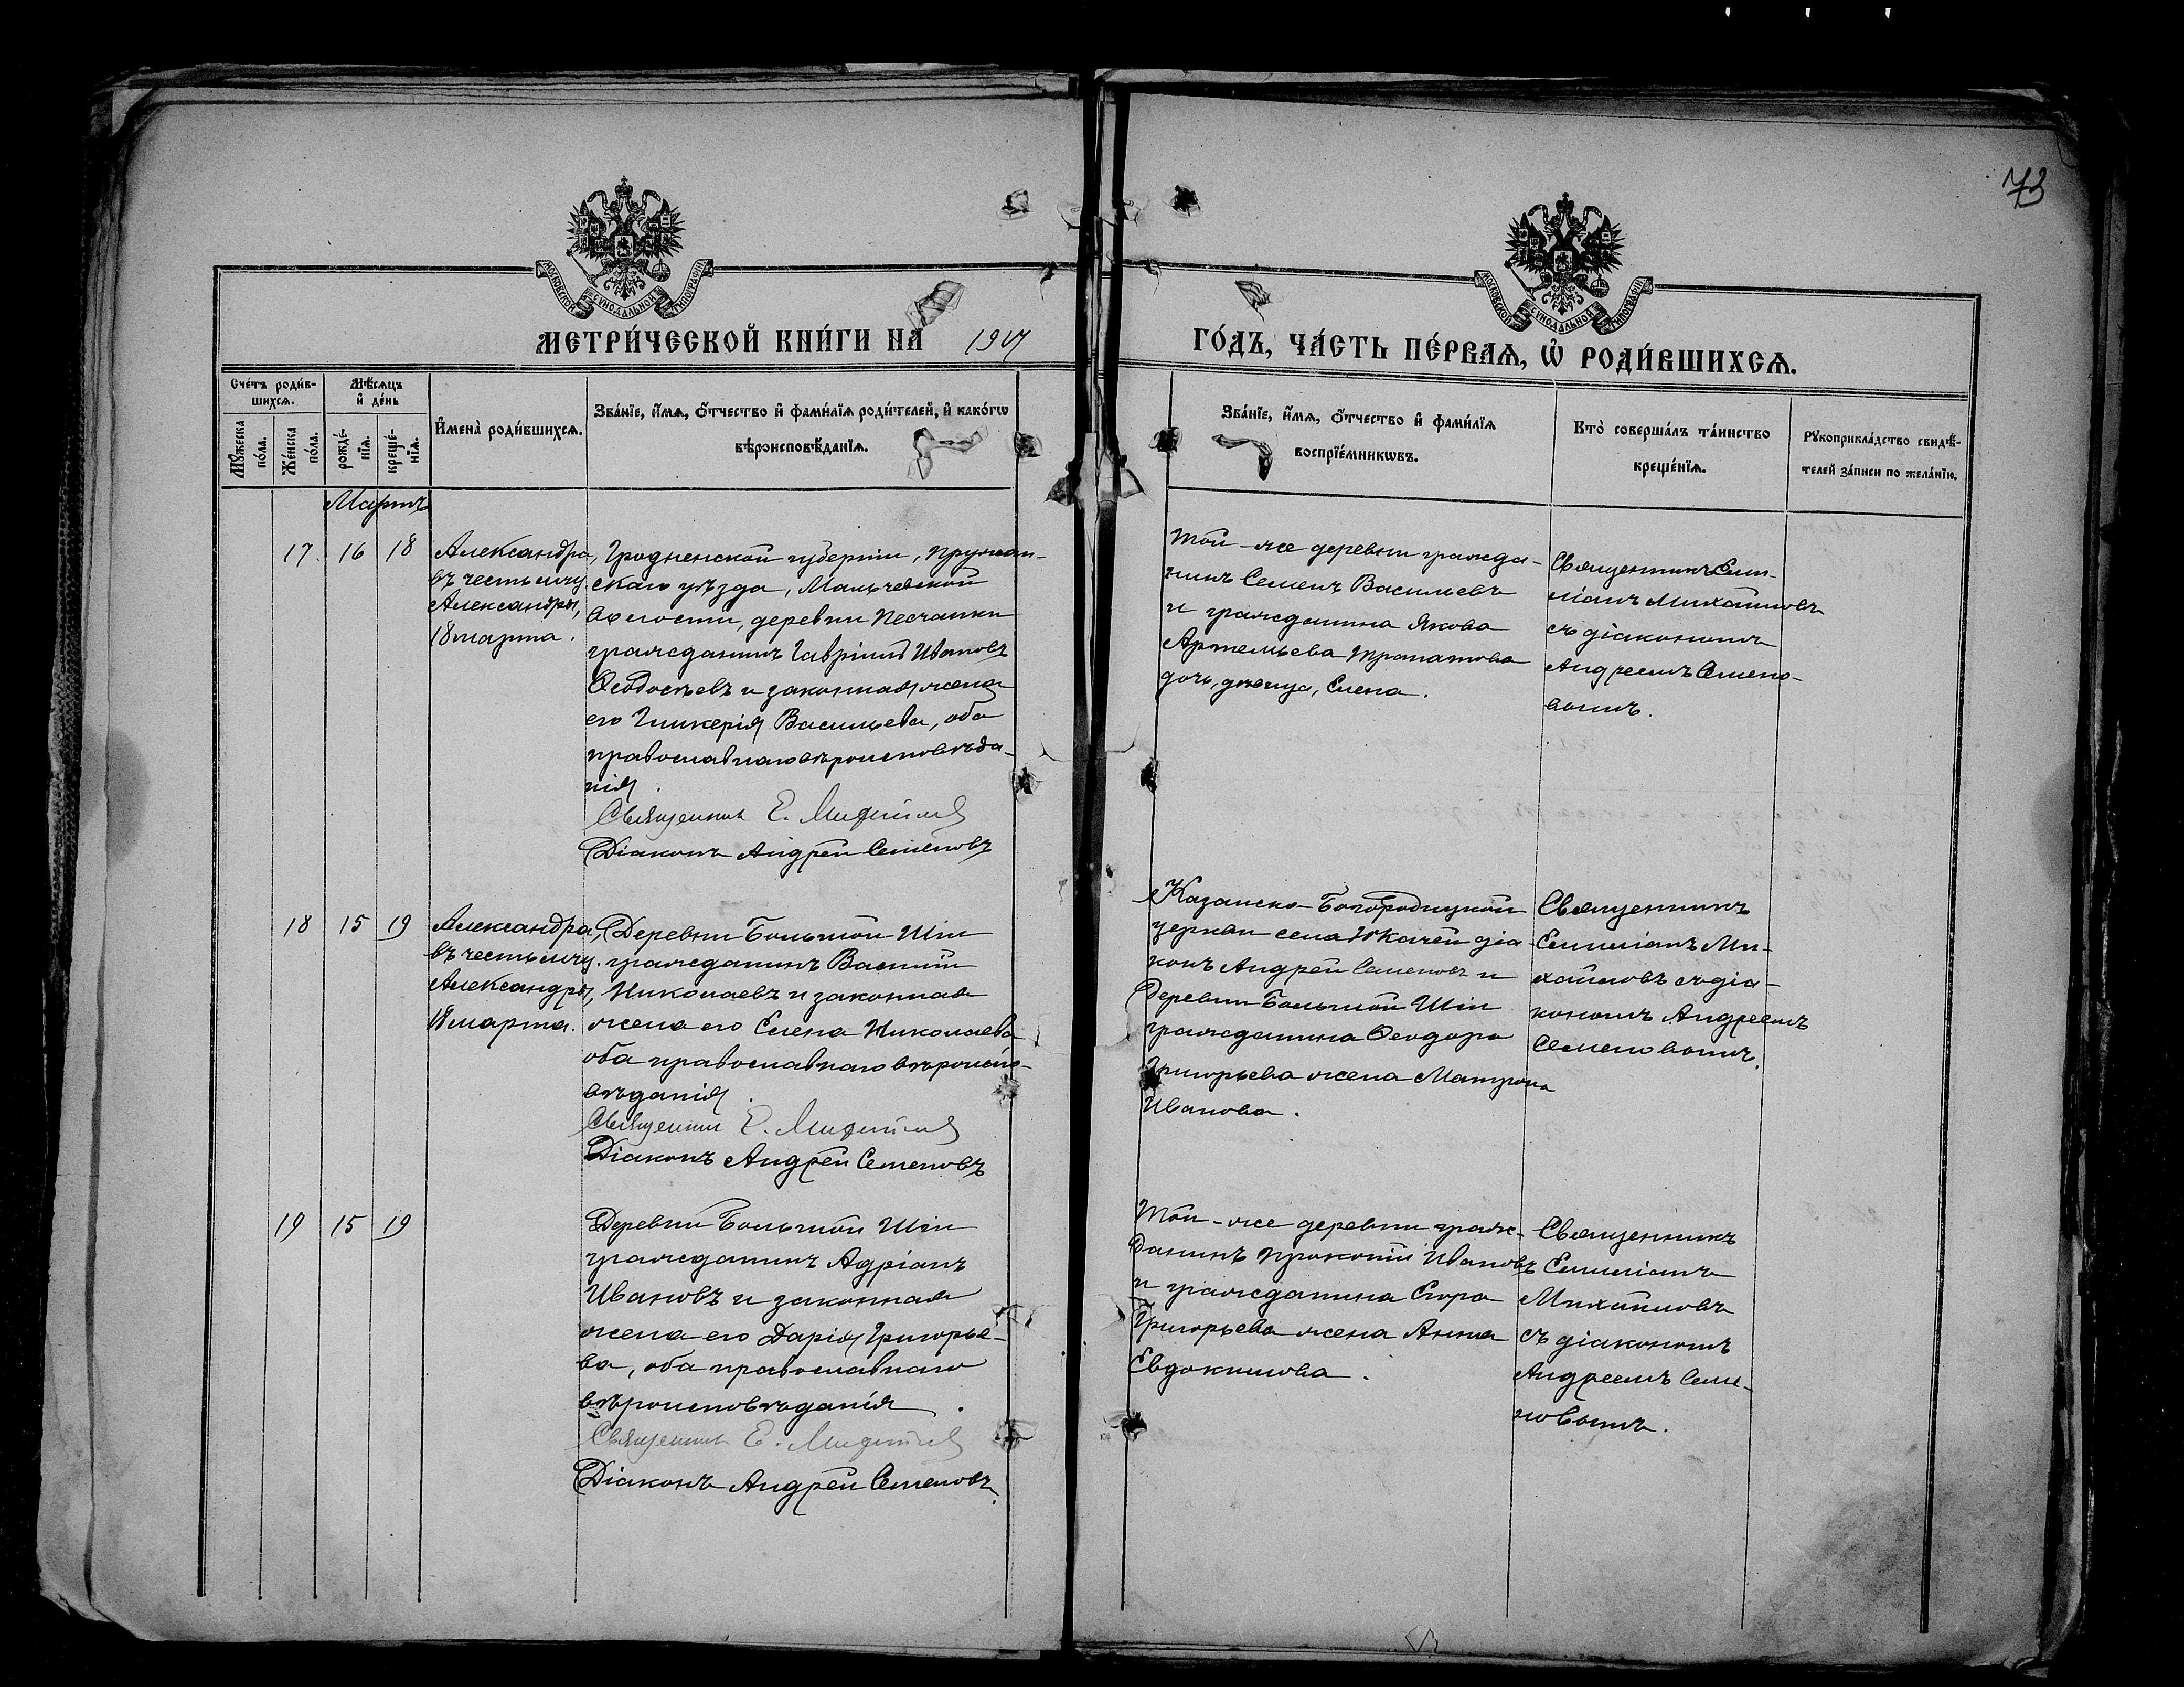 73
МОСКОВСКОЙ СѴНОДАЛЬНОЙ ТИПОГРАФІИ
МОСКОВСКОЙ СѴНОДАЛЬНОЙ ТИПОГРАФІИ
МЕТРИ́ЧЕСКОЙ КНИ́ГИ НА 1917
ГО́ДЪ, ЧА́СТЬ ПЕ́РВАѦ, Ѡ҆ РОДИ́ВШИХСѦ.
Сче́тъ роди́в-
шихсѧ.
Мꙋ́жеска по́ла.
Же́нска по́ла.
Мѣ́сѧцъ
и҆ де́нь
рожде́-
нїѧ.
креще́-
нїѧ.
И҆мена̀ роди́вшихсѧ.
Зва́нїе, и҆́мѧ, ѻ҆́тчество и҆ фами́лїѧ роди́телей, и҆ како́гѡ
вѣроисповѣ́данїѧ.
Зва́нїе, и҆́мѧ, ѻ҆́тчество и҆ фами́лїѧ
воспрїе́мникѡвъ.
Кто̀ соверша́лъ та́инство
креще́нїѧ.
Рꙋкоприкла́дство свидѣ́-
телей за́писи по жела́нїю.
Мартъ
17. 16 18
Александра,
въ честь мчц.
Александры,
18 марта.
Гродненской губерніи, Пружан-
скаго уѣзда, Мальчевской
волости, деревни Песчанки
гражданинъ Гавріилъ Ивановъ
Ѳеодосѣевъ и законная жена
его Гликерія Васильева, оба
православнаго вѣроисповѣда-
нія.
Священник Е. Михайлов
Діаконъ Андрей Семеновъ
Той-же деревни гражда-
нинъ Семенъ Васильевъ
и гражданина Якова
Артемьева дочь, дѣвица, Елена.
Священникъ Еми-
ліанъ Михайловъ
съ діакономъ
Андреемъ Семено-
вымъ.
18 15 19
Александра,
въ честь мчц.
Александры,
18 марта.
Деревни Большой Шіи
гражданинъ Василій
Николаевъ и законная
жена его Елена Николаева
оба православнаго вѣроиспо-
вѣданія.
Священник Е. Михайлов
Діаконъ Андрей Семеновъ
Казанско-Богородицкой
церкви села діа-
конъ Андрей Семеновъ и
деревни Большой Шіи
гражданина Ѳеодора
Григорьева жена Матрона
Иванова.
Священникъ
Емиліанъ Ми-
хайловъ съ діа-
кономъ Андреемъ
Семеновымъ.
19 15 19
Деревни Большой Шіи
гражданинъ Адріанъ
Ивановъ и законная
жена его Дарія Григорье-
ва, оба православнаго
вѣроисповѣданія.
Священник Е. Михайлов
Діаконъ Андрей Семеновъ.
Той-же деревни граж-
данинъ Прокопій Ивановъ
и гражданина Егора
Григорьева жена Анна
Евдокимова.
Священникъ
Емиліанъ
Михайловъ
съ діакономъ
Андреемъ Семе-
новымъ.